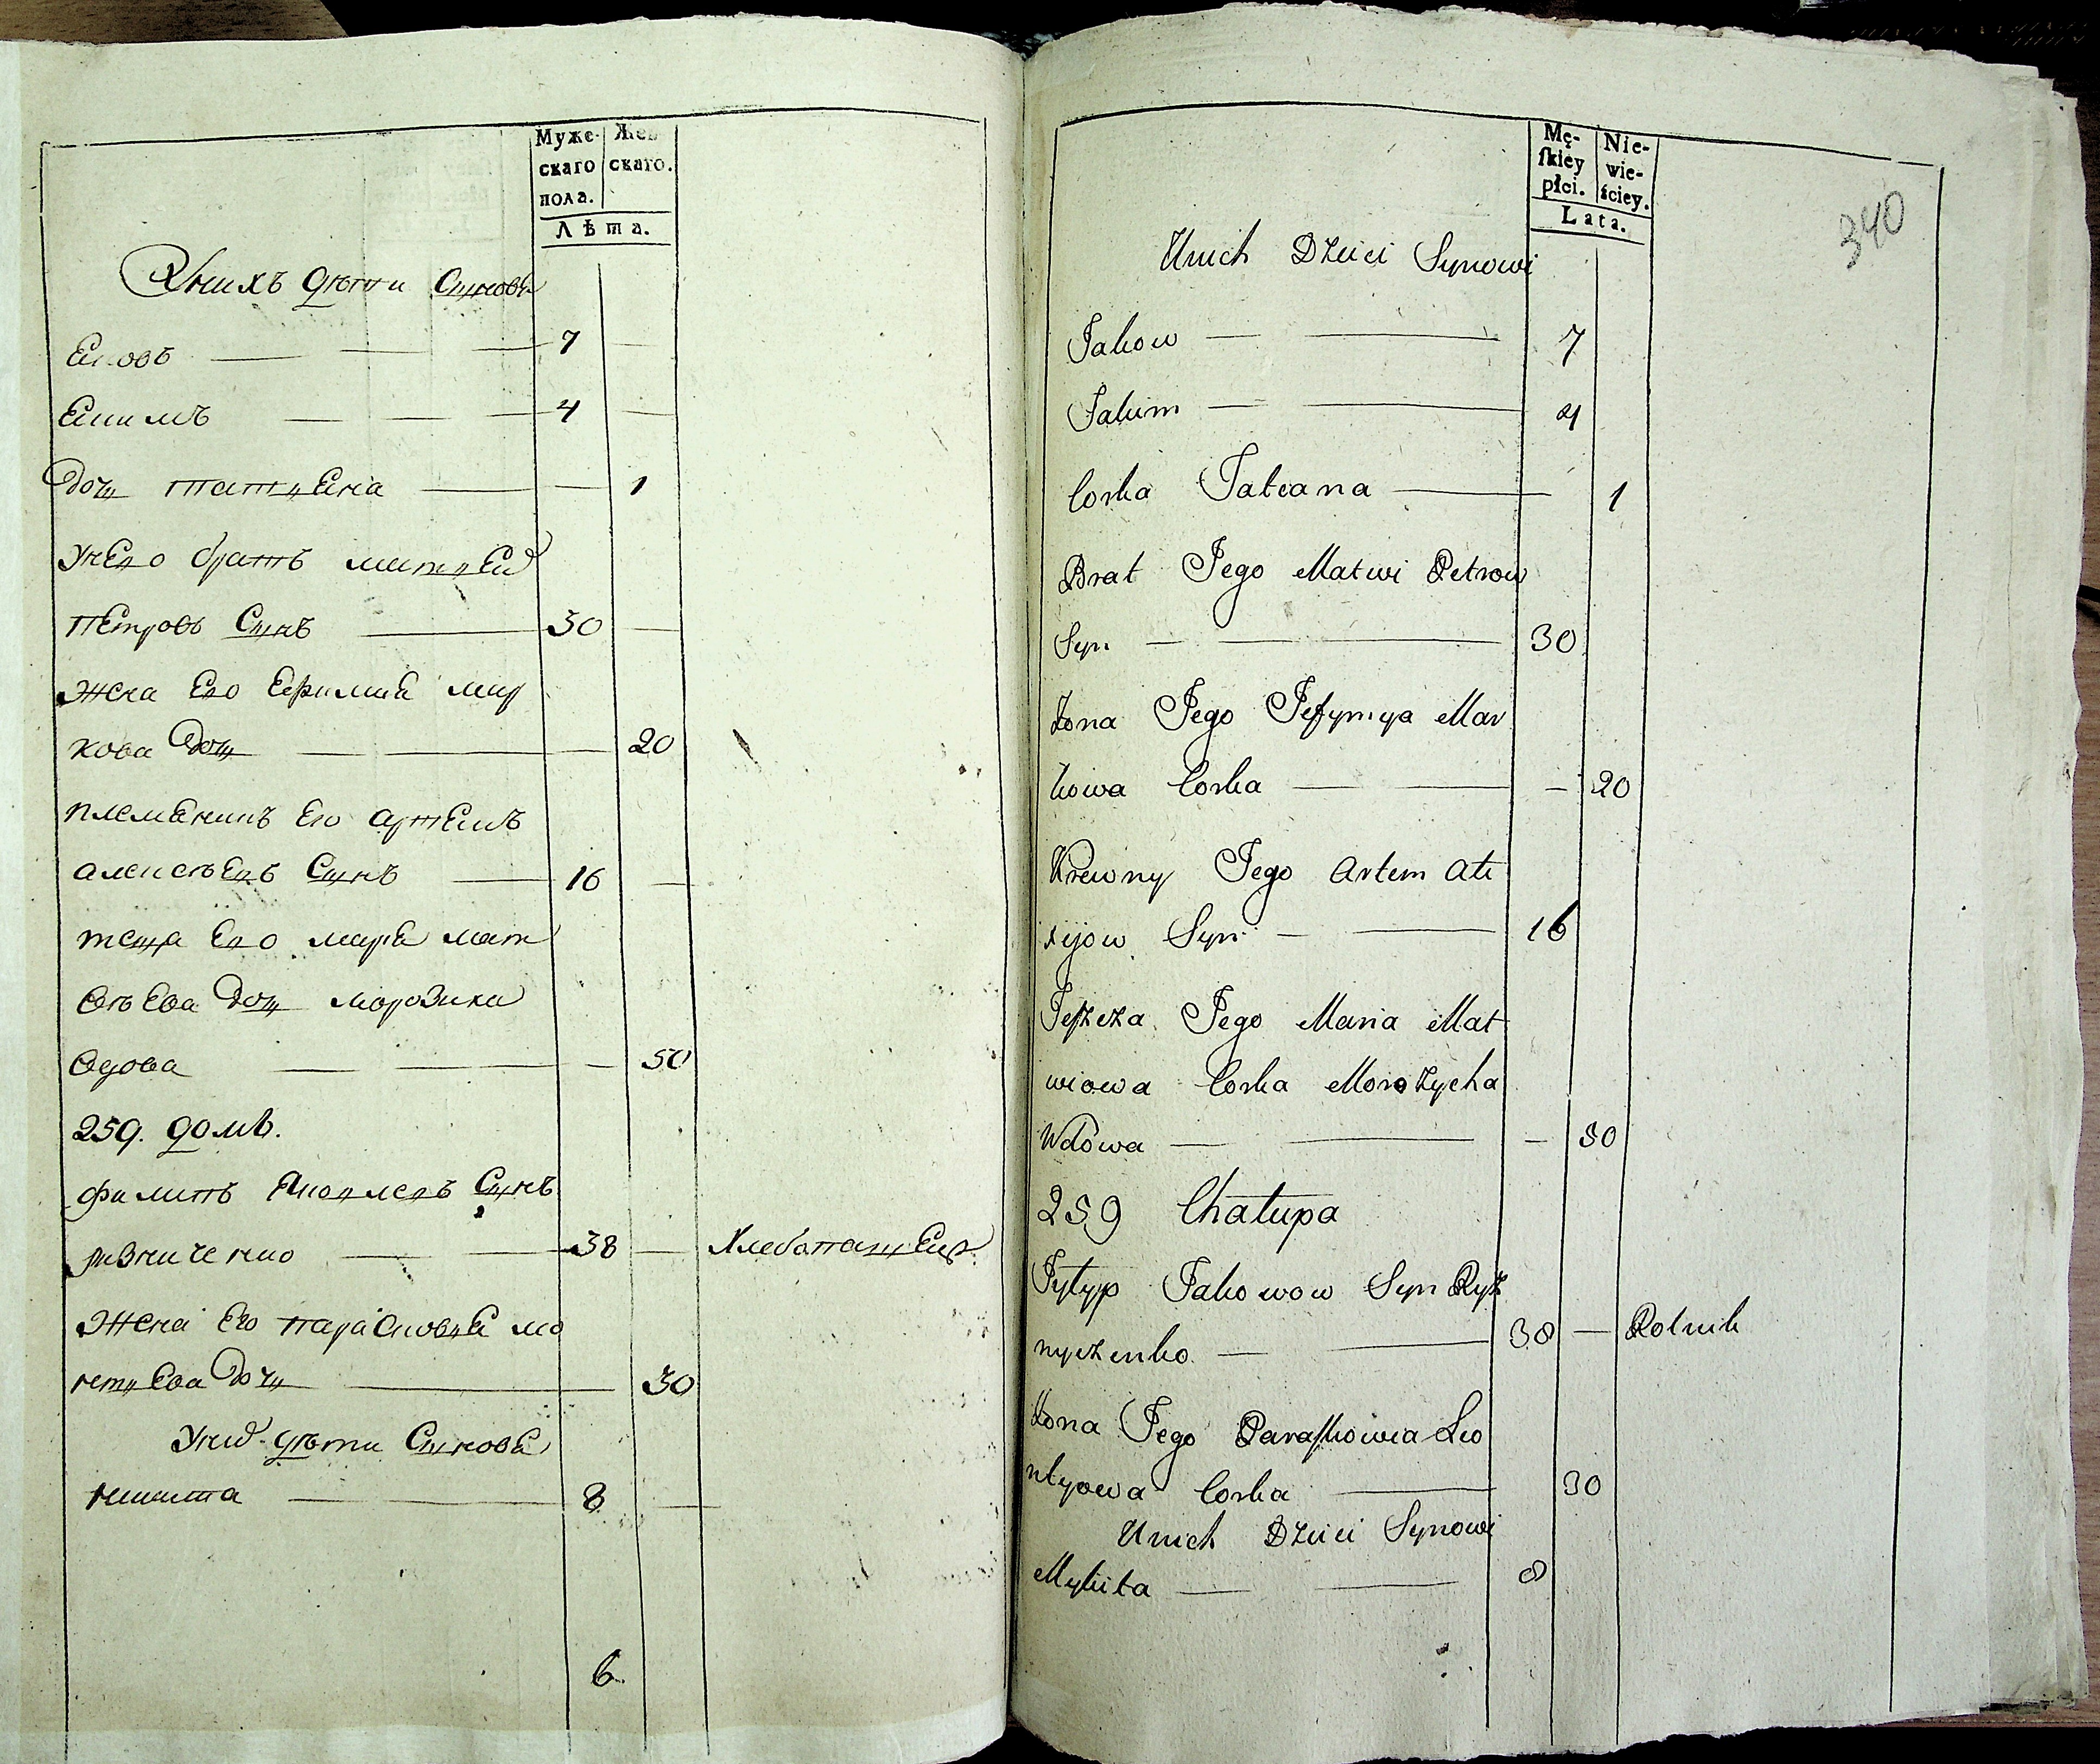 Муже-
скаго
пола.
Жен
скаго.
Лѣта.
Уних дѣти Синовѣ
Ековъ 7
Екимъ 4
Дочц татцEна 1
УнEго братъ матвEй
пEтровъ Синъ 30
Жена Eго Ефимиѣ мар
кова дощ 20
племѣникъ Eго артEмъ
алексѣEвъ Синъ 16
теща Eго марѣ мат
вѣEва дощ морозиха
вдова 50
259. домъ.
филипъ Яковлевъ Синъ
ризниченко 38 Хлебопашец
Жена Eго парасковиѣ ле
нетиEва дочц 30
Уних дѣти Синовѣ
никита 8
6
Mę-
ſkiey
płci.
Nie-
wie-
ściey.
Lata.
340
Unich Dzieci Synowi
Jakow 7
Jakim 4
Corka Tatiana 1
Brat Jego Matwi Petrow
Syn 30
Zona Jego Jefymya Mar
kowa Corka 20
Krewny Jego Artem Ale
xijow Syn 16
Teszcza Jego Maria Mat
wiowa Corka Morozycha
Wdowa 50
259 Chałupa
Fylyp Jakowow Syn Ryz
nyczenko 38 Rolnik
Zona Jego Paraſkowia Leo
ntyowa Corka 30
Unich Dzieci Synowi
Mykita 8